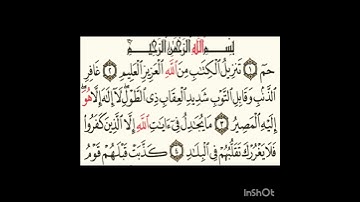 بِسْمِ اللَّهِ الرَّحْمَٰنِ الرَّحِيمِ
حمٓ ﴿١﴾ تَنزِيلُ الْكِتَابِ مِنَ اللَّهِ الْعَزِيزِ الْعَلِيمِ ﴿٢﴾ غَافِرِ
الذَّنبِ وَقَابِلِ التَّوْبِ شَدِيدِ الْعِقَابِ ذِى الطَّوْلِ لَآ إِلَٰهَ إِلَّا هُوَ
إِلَيْهِ الْمَصِيرُ ﴿٣﴾ مَا يُجَادِلُ فِىٓ ءَايَاتِ اللَّهِ إِلَّا الَّذِينَ كَفَرُوا
فَلَا يَغْرُرْكَ تَقَلُّبُهُمْ فِى الْبِلَادِ ﴿٤﴾ كَذَّبَتْ قَبْلَهُمْ قَوْمُ
InShOt